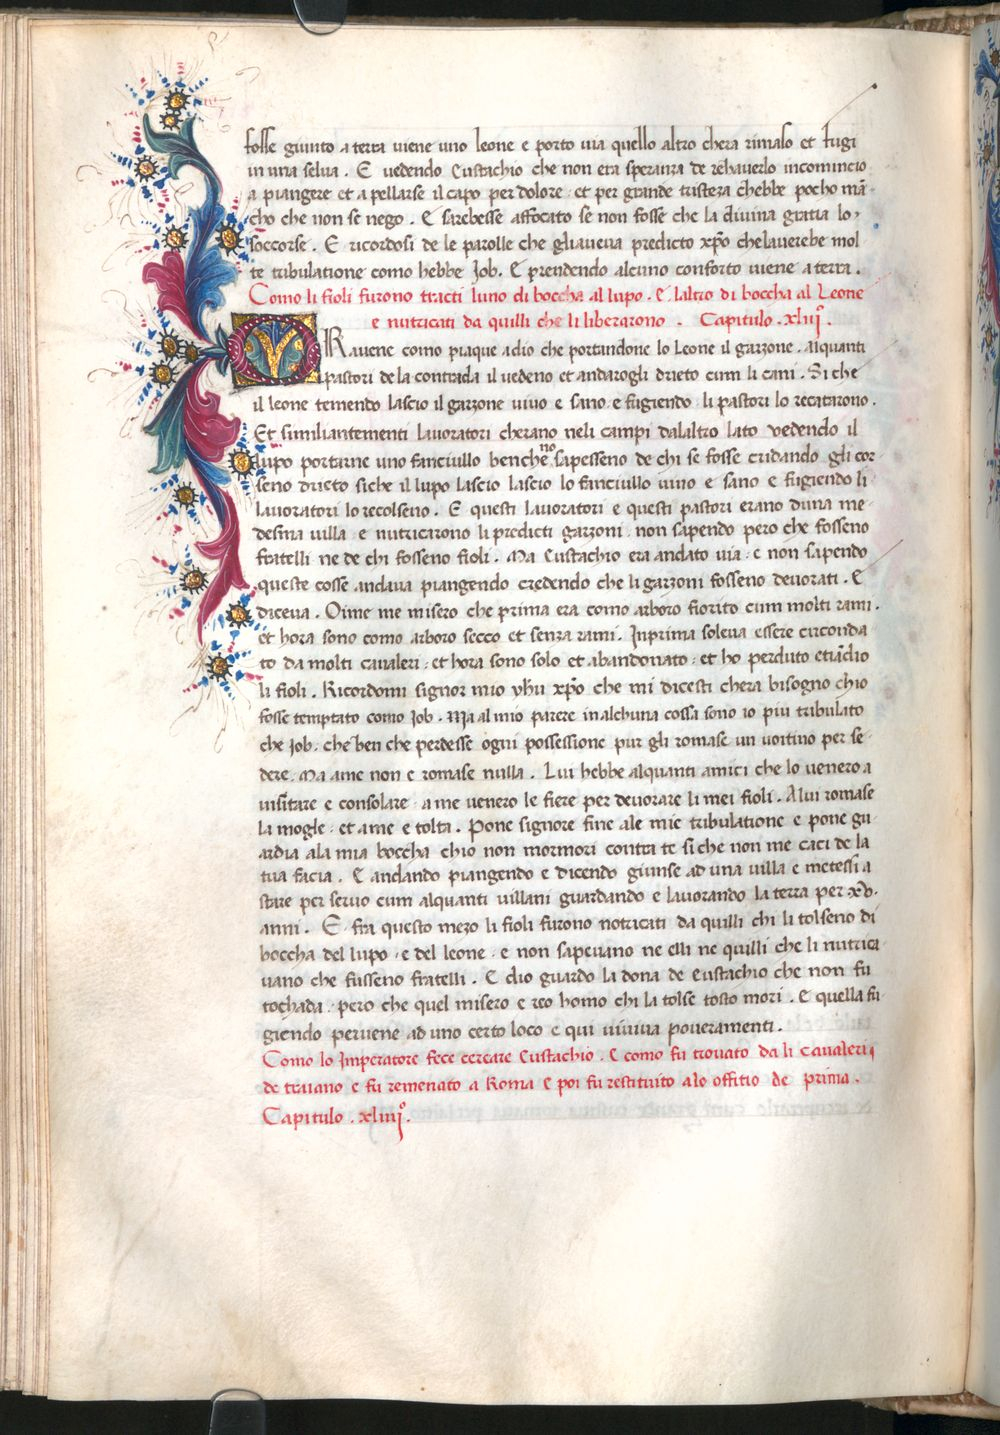 fosse giunto a terra viene uno leone e porto via quello altro chera rimaso et fugi
in una selva . E vedendo Eustachio che non era speranza de rehaverlo incomincio
a piangere et a pellarse il capo per dolore · et per grande tristeza chebbe pocho mā-
cho che non se nego . E sarebesse affocato se non fosse che la divina gratia lo
soccorse . E ricordosi de le parolle che gliaveva predicto xp̄o chelaverebe mol
te tribulatione como hebbe Job . E prendendo alcuno conforto viene a terra .
Como li fioli furono tracti luno di boccha al lupo . E laltro di boccha al Leone
e nutricati da quilli che li liberarono . Capitulo . xliijº .
Ravene como piaque adio che portandone lo Leone il garzone . alquanti
pastori de la contrada il vedeno et andarogli drieto cum li cani . Si che
il leone temendo lascio il garzone vivo e sano e fugiendo li pastori lo recatarono .
Et similiantementi lavoratori cherano neli campi dalaltro lato vedendo il
lupo portarne uno fanciullo benche no sapesseno de chi se fosse cridando gli cor-
seno drieto siche il lupo lascio lascio lo fanciullo vivo e sano e fugiendo li
lavoratori lo recolseno . E questi lavoratori e questi pastori erano duna me-
desma villa · e nutricarono li predicti garzoni . non sapendo pero che fosseno
fratelli ne de chi fosseno fioli . Ma Eustachio era andato via · e non sapendo
queste cosse andava piangendo credendo che li garzoni fosseno devorati . E
diceva . Oime me misero che prima era como arboro fiorito cum molti rami .
et hora sono como arboro secco et senza rami . Inprima soleva essere circonda
to da molti cavaleri · et hora sono solo et abandonato · et ho perduto etiādio
li fioli . Ricordomi signor mio yhu xp̄o che mi dicesti chera bisogno chio
fosse temptato como Job . Ma al mio parere in alchuna cossa sono io piu tribulato
che Job . che ben che perdesse ogni possessione pur gli romase un voitino per se-
dere . Ma ame non e romase nulla . Lui hebbe alquanti amici che lo venero a
visitare e consolare · a me venero le fiere per devorare li mei fioli . Alui romase
la mogle · et a me e tolta . Pone signore fine ale mie tribulatione e pone gu-
ardia ala mia boccha chio non mormori contra te si che non me caci de la
tua facia . E andando piangendo e dicendo giunse ad una villa e metessi a
stare per servo cum alquanti villani guardando e lavorando la terra per xv .
anni . E fra questo mezo li fioli furono notricati da quilli chi li tolseno di
boccha del lupo · e del leone · e non sapevano ne elli ne quilli che li nutrica
vano che fusseno fratelli . E dio guardo la dona de eustachio che non fu
tochada · pero che quel misero e reo homo chi la tolse tosto mori . E quella fu-
giendo pervene ad uno certo loco e qui viviva poveramenti .
Como lo Imperatore fece cercare Eustachio . E como fu trovato da li cavaleri
de traiano e fu remenato a Roma E poi fu restituito a lo offitio de prima .
Capitulo . xliiijº .